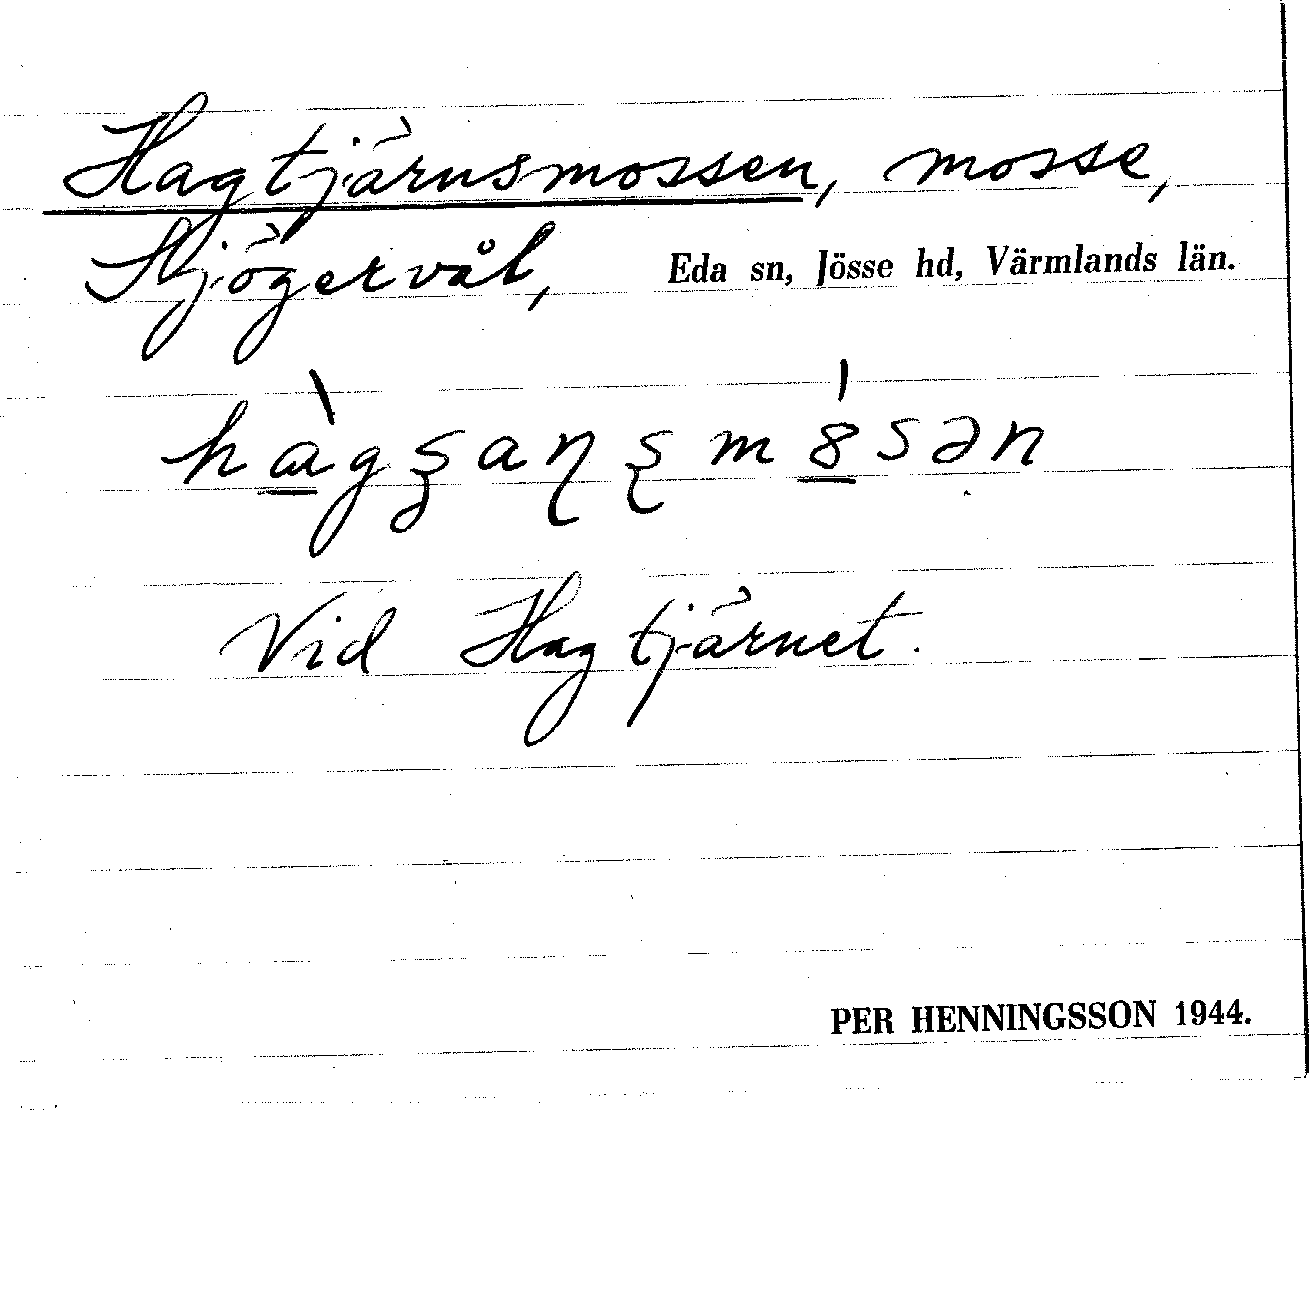 Hagtjärnsmossen, mosse,
Hjögervål, Eda sn, Jösse hd, Värmlands län.
hàgʂaɳʂm8́sən
Vid Hagtjärnet.
PER HENNINGSSON 1944.